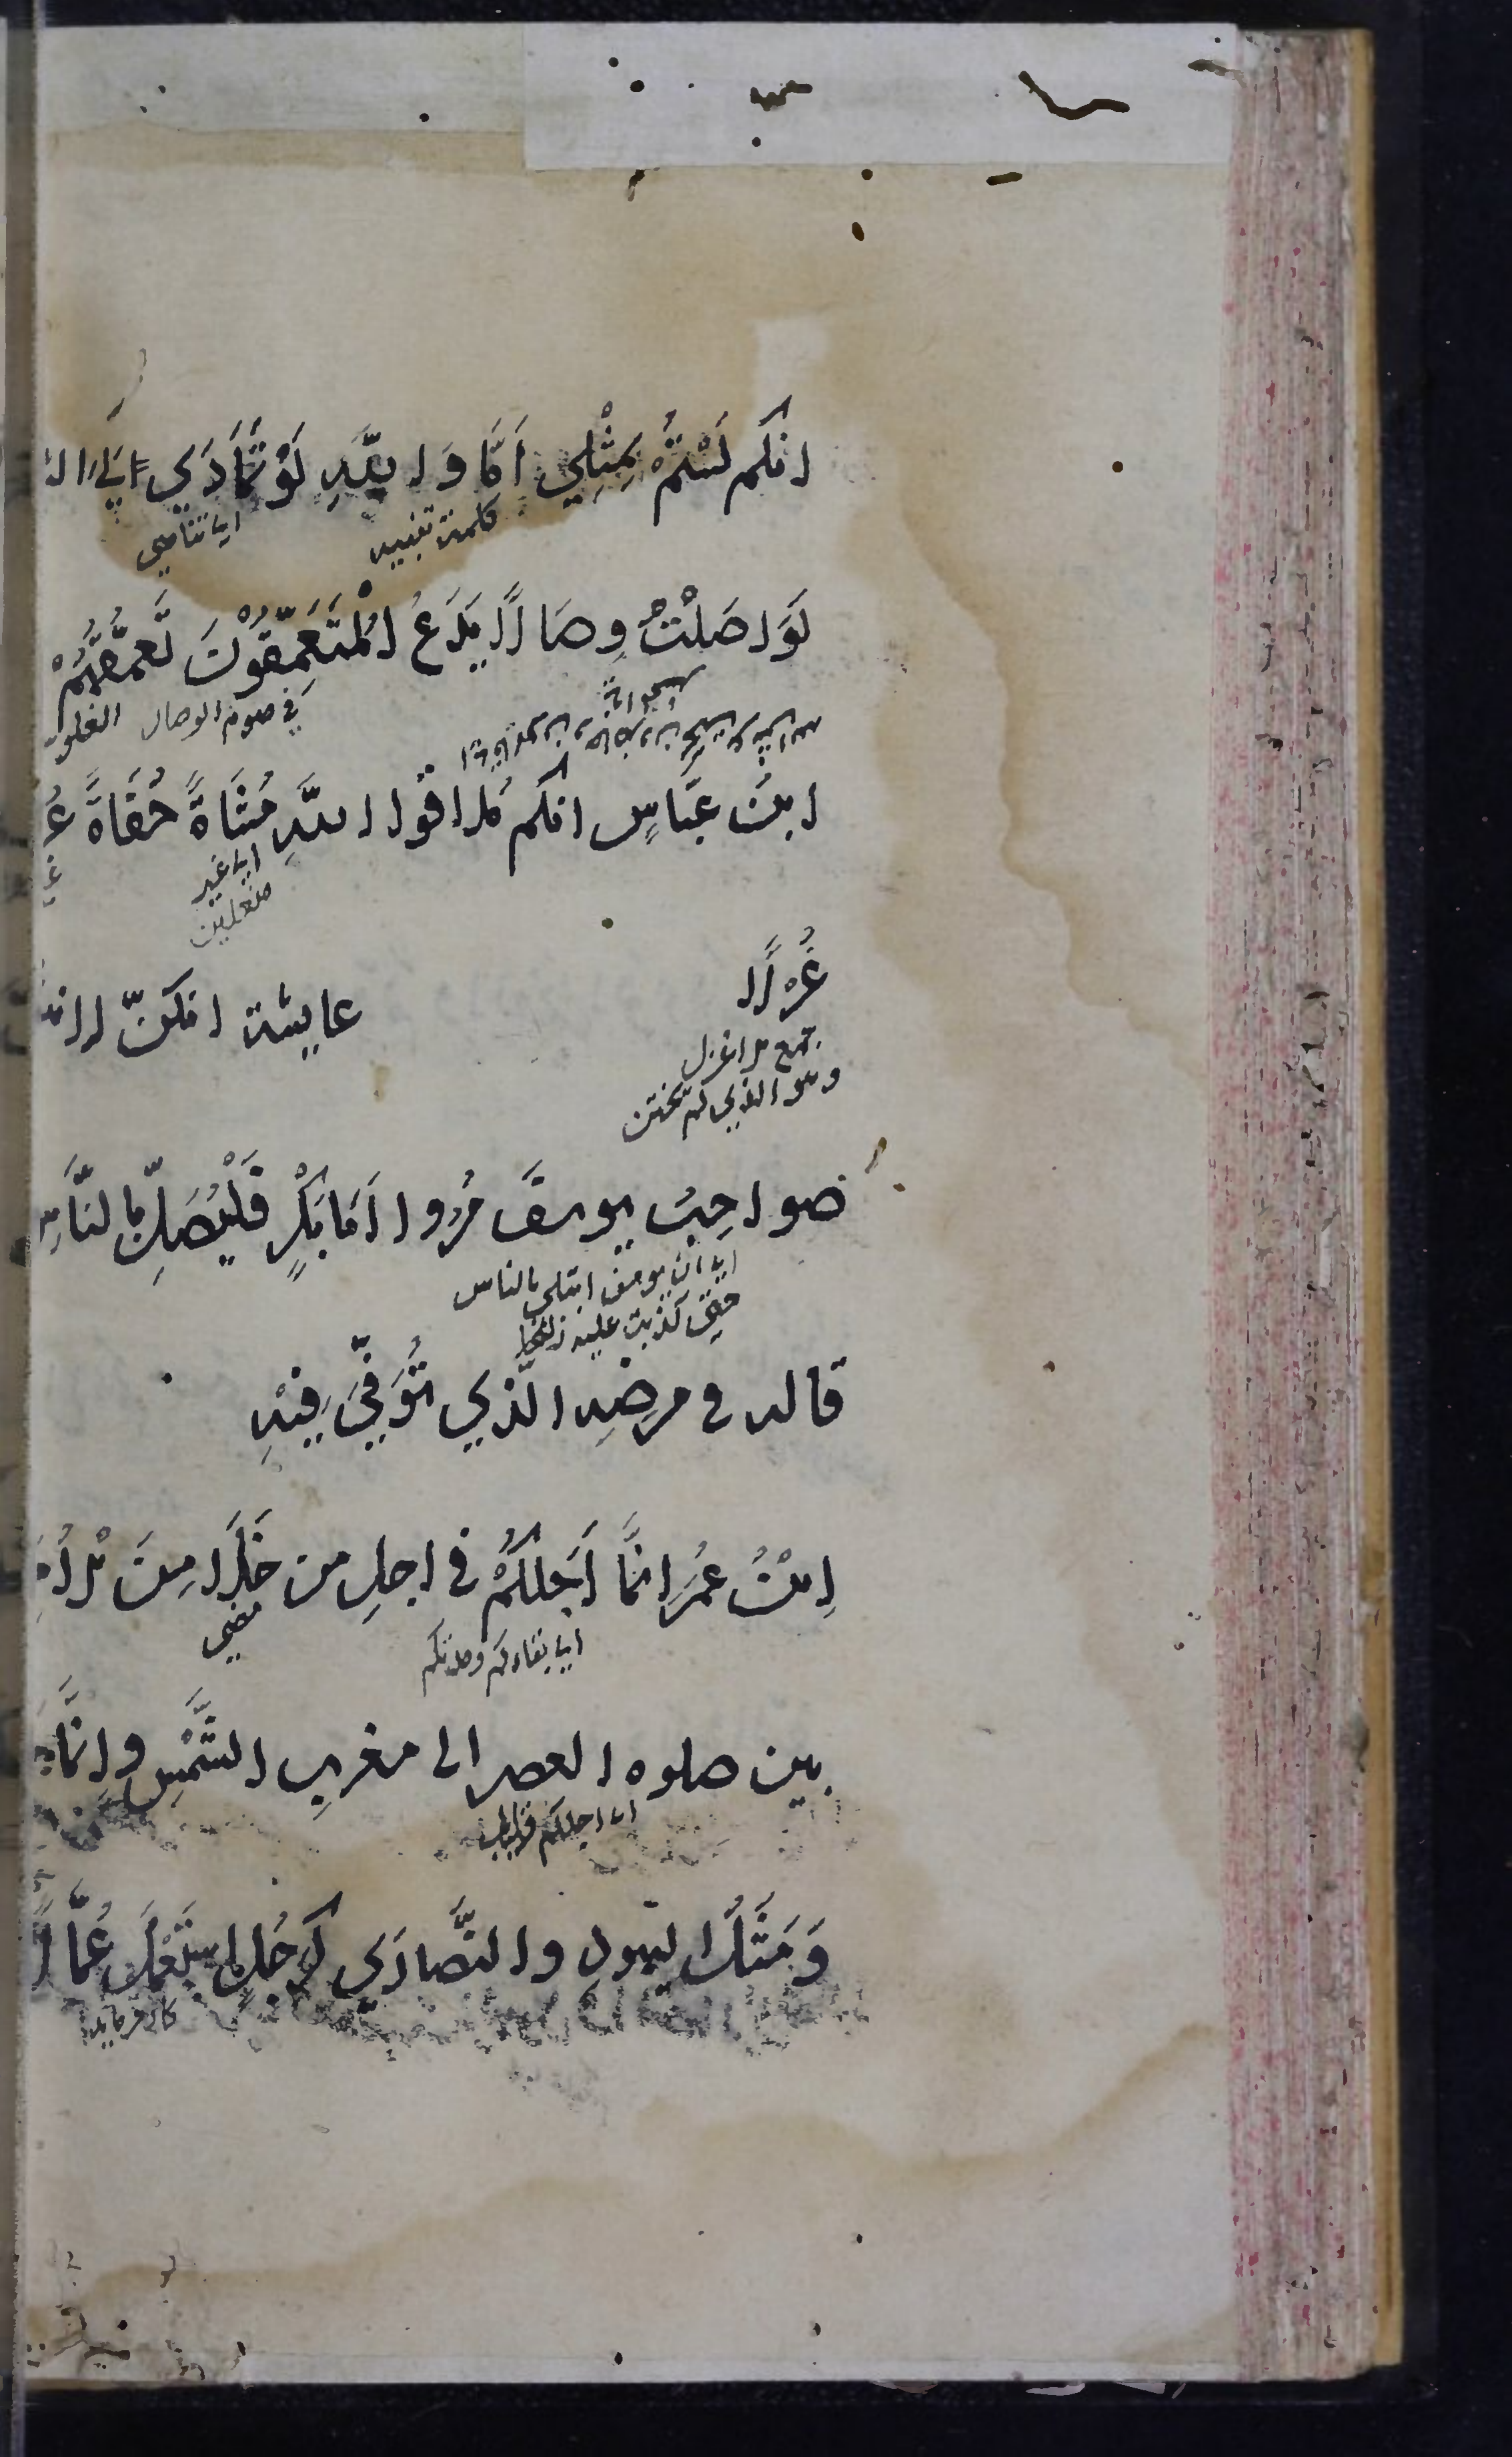 انكم لَسْتُمْ مِثْلِي اَمَا وَ اللّهِ لَوْ تَمَادَي لِيَ ال
كلمة تنبيه اي تناهي
لَوَاصَلْتُ وِصَالًا يَدَعُ الْمُتَعَمِّقُوْنَ تَعَمُّقَهُمْ
في صوم الوصال الغلو
ابن عَبَّاسٍ انكم مُلاقُوا اللّهِ مُشَاةً حُفَاةً عُ
اي غير
منعلين
غُرْلًا
عايشة انكنّ لانت
جمع الاغرل
وهو الذي لم يختتن
صواحِبُ يوسفَ مُرُوا اَبَا بَكْرٍ فَلْيُصَلِّ بِالنَّاسِ
اي ان يوسف ابتلي بالناس
حتى كذبت عليه زليخا
قاله في مرضِهِ الّذي تُوُفِّيَ فِيْهِ
اِبْنُ عُمَرَ انمَّا اَجَلُكُمْ في اجلِ من خَلَا مِنَ الْاُمَ
مضي
اي بقاءكم ومدتكم
بين صلوه العصر الى مغربِ الشَّمْسِ واِنَّمَا
اي اجلكم قليل
وَمَثَلُ اليهودِ والنَّصارَي كَرَجُلٍ اسْتَعْمَلَ عُمَّالًا
كار فرمايد